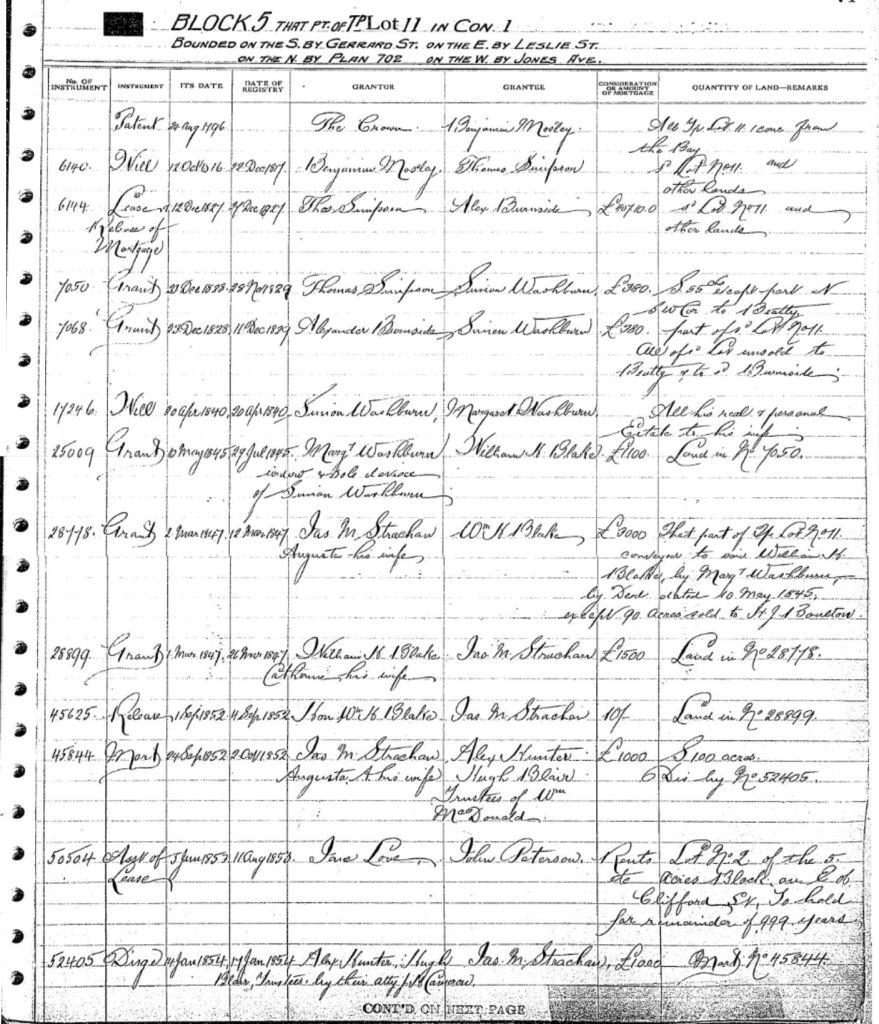 BLOCK 5 THAT PT. OF TP Lot 11 IN CON. 1
BOUNDED ON THE S. BY GERRARD ST. ON THE E. BY LESLIE ST.
ON THE N. BY PLAN 702 ON THE W. BY JONES AVE.
No. OF INSTRUMENT INSTRUMENT ITS DATE DATE OF REGISTRY GRANTOR GRANTEE CONSIDERATION OR AMOUNT OF MORTGAGE QUANTITY OF LAND—REMARKS
Patent 24 Aug 1796 The Crown Benjamin Mosley All Tp Lot 11 1 conc from
the Bay
6140 Will 12 Oct 1816 22 Dec 1817 Benjamin Mosley Thomas Simpson sd Lot No 11 and
other lands
6144 Lease & 12 Dec 1827 27 Dec 1827 Thos Simpson Alex Burnside sd Lot No 11 and
Release of other lands
Mortgage
7050 Grant 23 Dec 1828 28 Nov 1829 Thomas Simpson Simon Washburn £380 S. 55 except part N
S W Cor to Beatty
7068 Grant 23 Dec 1828 11 Dec 1829 Alexander Burnside Simon Washburn £380 part of sd Lot No 11.
All of sd Lot unsold to
Beatty & to sd Burnside
17246 Will 20 Apr 1840 Simon Washburn Margaret Washburn All his real & personal
Estate to his wife
25009 Grant 10 May 1845 29 Jul 1845 Margt Washburn William H. Blake £1100 Land in No 7050.
widow & sole devisee
of Simon Washburn
28778 Grant 2 Mar 1847 12 Mar 1847 Jas M. Strachan Wm H Blake £3000 That part of Tp Lot No 11.
Augusta his wife conveyed to one William H
Blake, by Margt Washburn
by Deed dated 10 May 1845.
except 90 acres sold to H. J. Boulton.
28899 Grant 1 Mar 1847 26 Mar 1847 William H. Blake Jas M. Strachan £1500 Land in No 28778.
Catherine his wife
45625 Release 1 Sep 1852 4 Sep 1852 Hon Wm H Blake Jas M. Strachan 10/- Land in No 28899.
45844 Mort 24 Sep 1852 2 Oct 1852 Jas M. Strachan Alex Hunter £1000 S 100 acres.
Augusta A. his wife Hugh Blair Dis by No 52405.
Trustees of Wm
McDonald
50504 Asst of 5 Jun 1853 11 Aug 1853 Jane Love John Paterson Rents Lot No 2 of the 5.
Lease etc acres Block on E of
Clifford St. To hold
for remainder of 999 years
52405 Disge 14 Jan 1854 17 Jan 1854 Alex Hunter, Hugh Jas M. Strachan £1000 Mort No 45844.
Blair, Trustees by their atty J. H Cameron
CONT'D ON NEXT PAGE